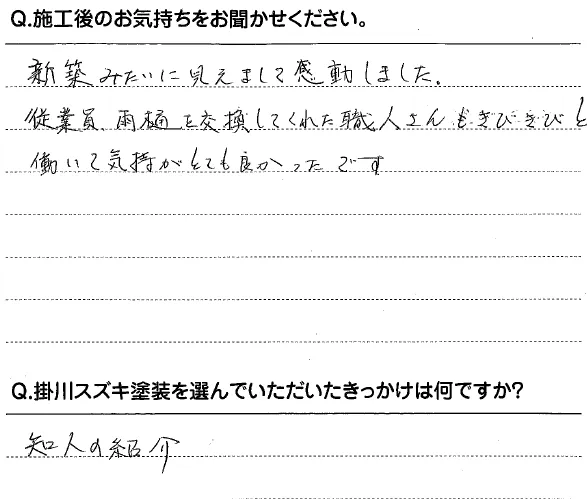 Q.施工後のお気持ちをお聞かせください。
新築みたいに見えまして感動しました。
従業員、雨樋を交換してくれた職人さんもきびきびと
働いて気持がとても良かったです
Q.掛川スズキ塗装を選んでいただいたきっかけは何ですか?
知人の紹介